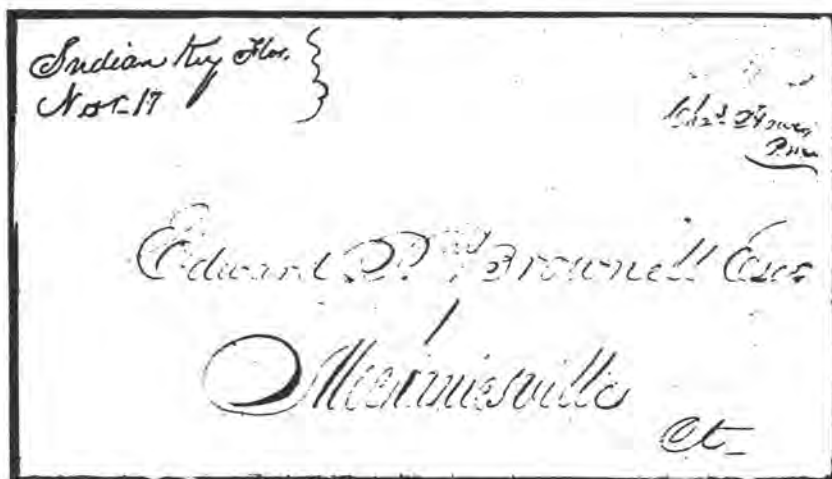 Indian Key Flor.
Nov 17
Chas. Howe
P.M.
Edward P. Brownell Esq.
Ct.